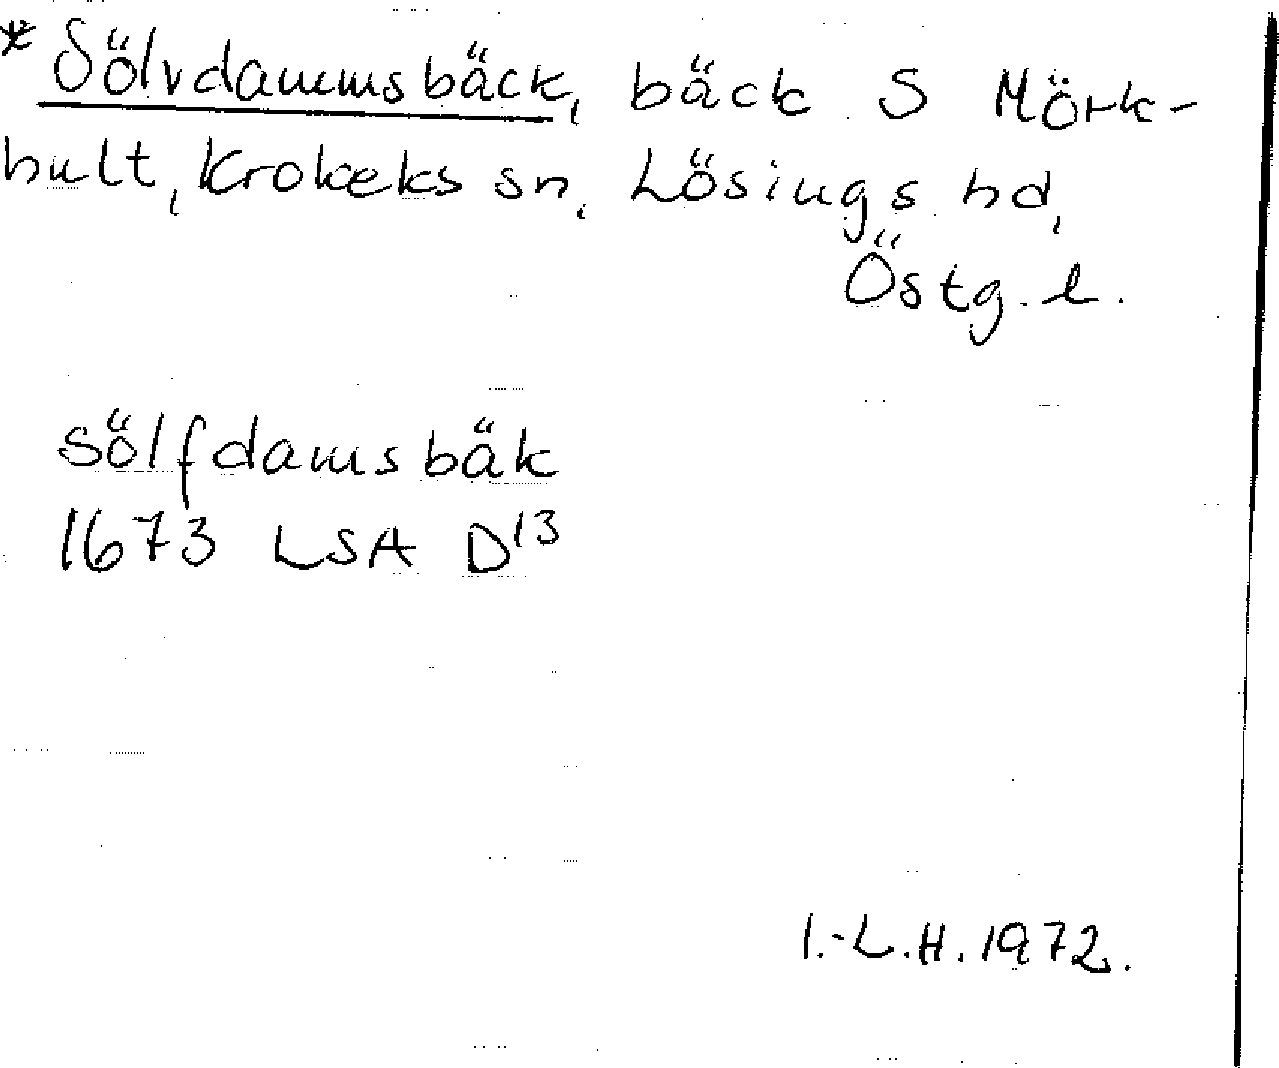 *Sölvdammsbäck, bäck S Mörk-
hult, Krokeks sn, Lösings hd,
Östg. l.
sölfdamsbäk
1673 LSA D13
I.-L.H. 1972.